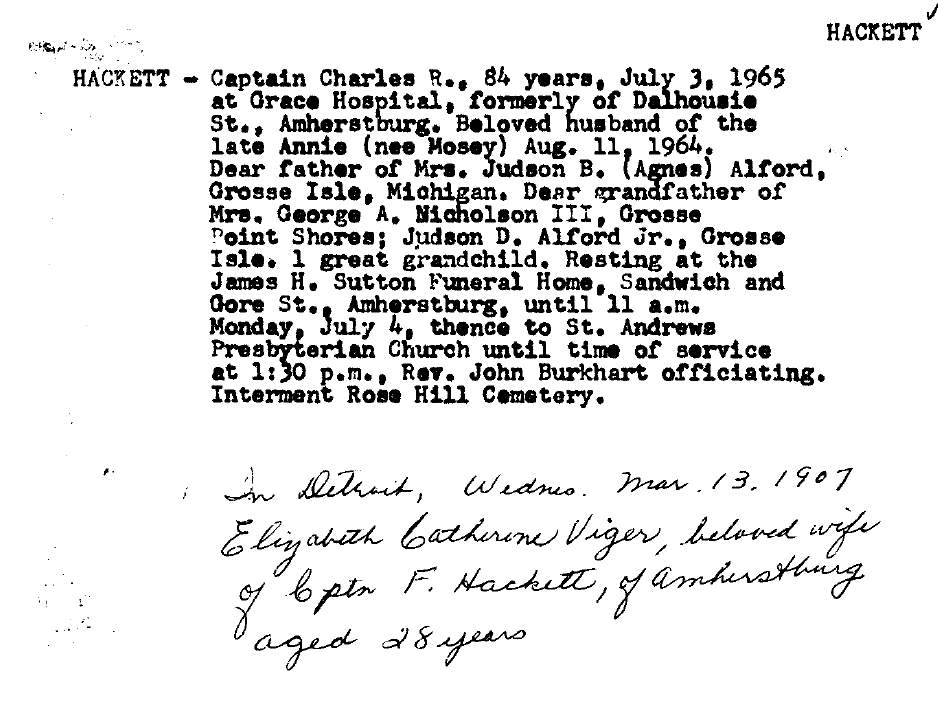 HACKETT
HACKETT - Captain Charles R., 84 years, July 3, 1965
at Grace Hospital, formerly of Dalhousie
St., Amherstburg. Beloved husband of the
late Annie (nee Mosey) Aug. 11, 1964.
Dear father of Mrs. Judson B. (Agnes) Alford,
Grosse Isle, Michigan. Dear grandfather of
Mrs. George A. Nicholson III, Grosse
Point Shores; Judson D. Alford Jr., Grosse
Isle. 1 great grandchild. Resting at the
James H. Sutton Funeral Home, Sandwich and
Gore St., Amherstburg, until 11 a.m.
Monday, July 4, thence to St. Andrews
Presbyterian Church until time of service
at 1:30 p.m., Rev. John Burkhart officiating.
Interment Rose Hill Cemetery.
In Detroit, Wednes. Mar. 13. 1907
Elizabeth Catherine Viger, beloved wife
of Cptn F. Hackett, of Amherstburg
aged 28 years